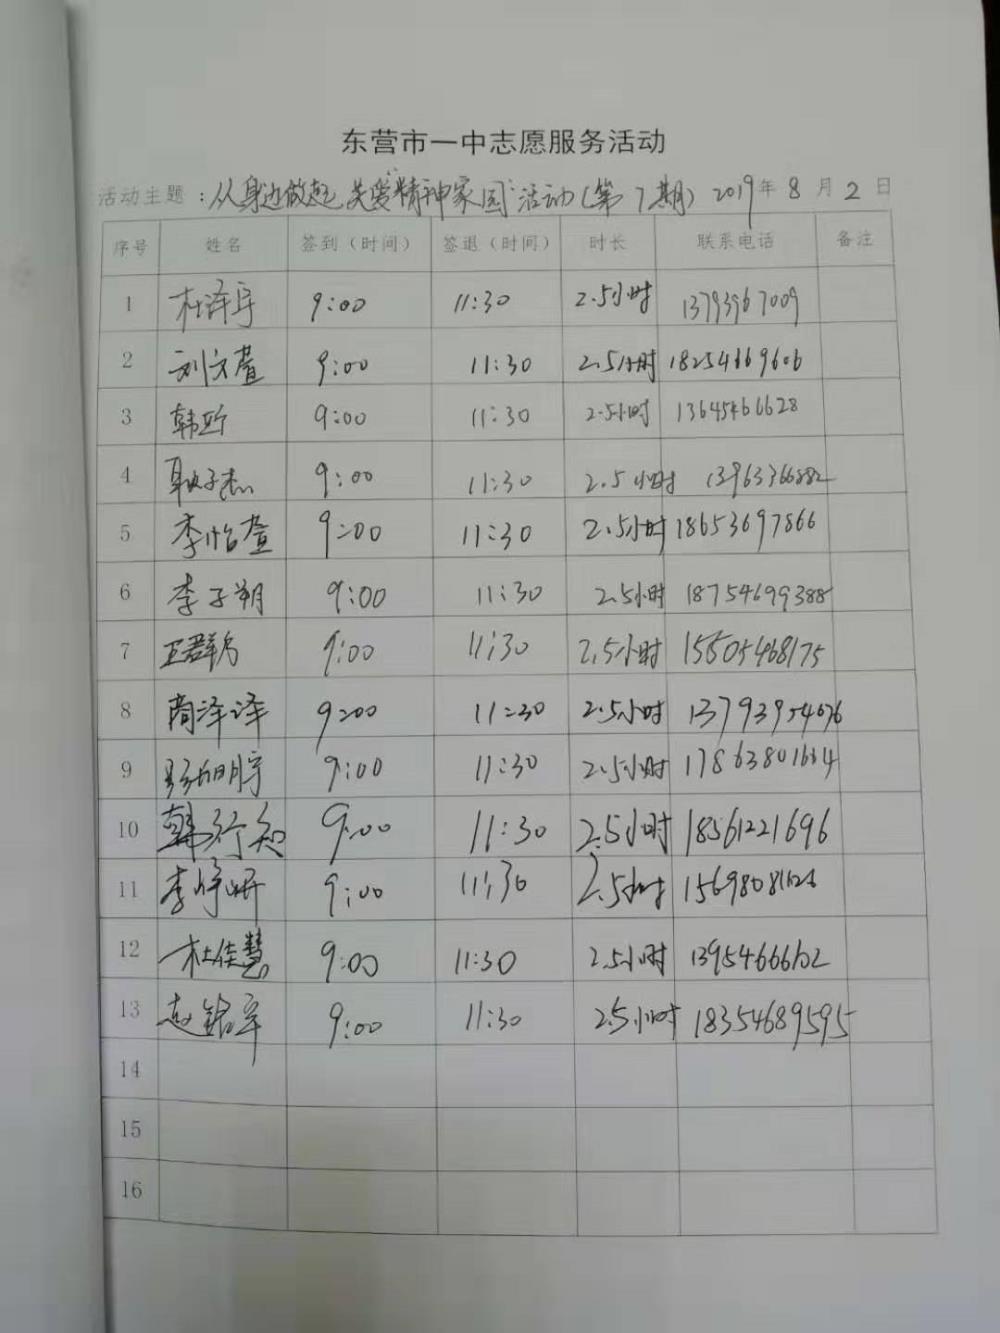 东营市一中志愿服务活动
活动主题：从身边做起 关爱"精神家园"活动(第7期) 2019年8月2日
序号 姓名 签到（时间） 签退（时间） 时长 联系电话 备注
1 杜泽宇 9:00 11:30 2.5小时 13793967009
2 刘文萱 9:00 11:30 2.5小时 18254669606
3 韩昕 9:00 11:30 2.5小时 13645466628
4 耿子杰 9:00 11:30 2.5小时 13963366882
5 李怡萱 9:00 11:30 2.5小时 18653697866
6 李子朔 9:00 11:30 2.5小时 18754699388
7 9:00 11:30 2.5小时 15505468175
8 商泽译 9:00 11:30 2.5小时 13793954676
9 9:00 11:30 2.5小时 17863801664
10 韩行知 9:00 11:30 2.5小时 18561221696
11 9:00 11:30 2.5小时
12 杜佳慧 9:00 11:30 2.5小时 13954666602
13 赵铭宇 9:00 11:30 2.5小时 18354689595
14
15
16